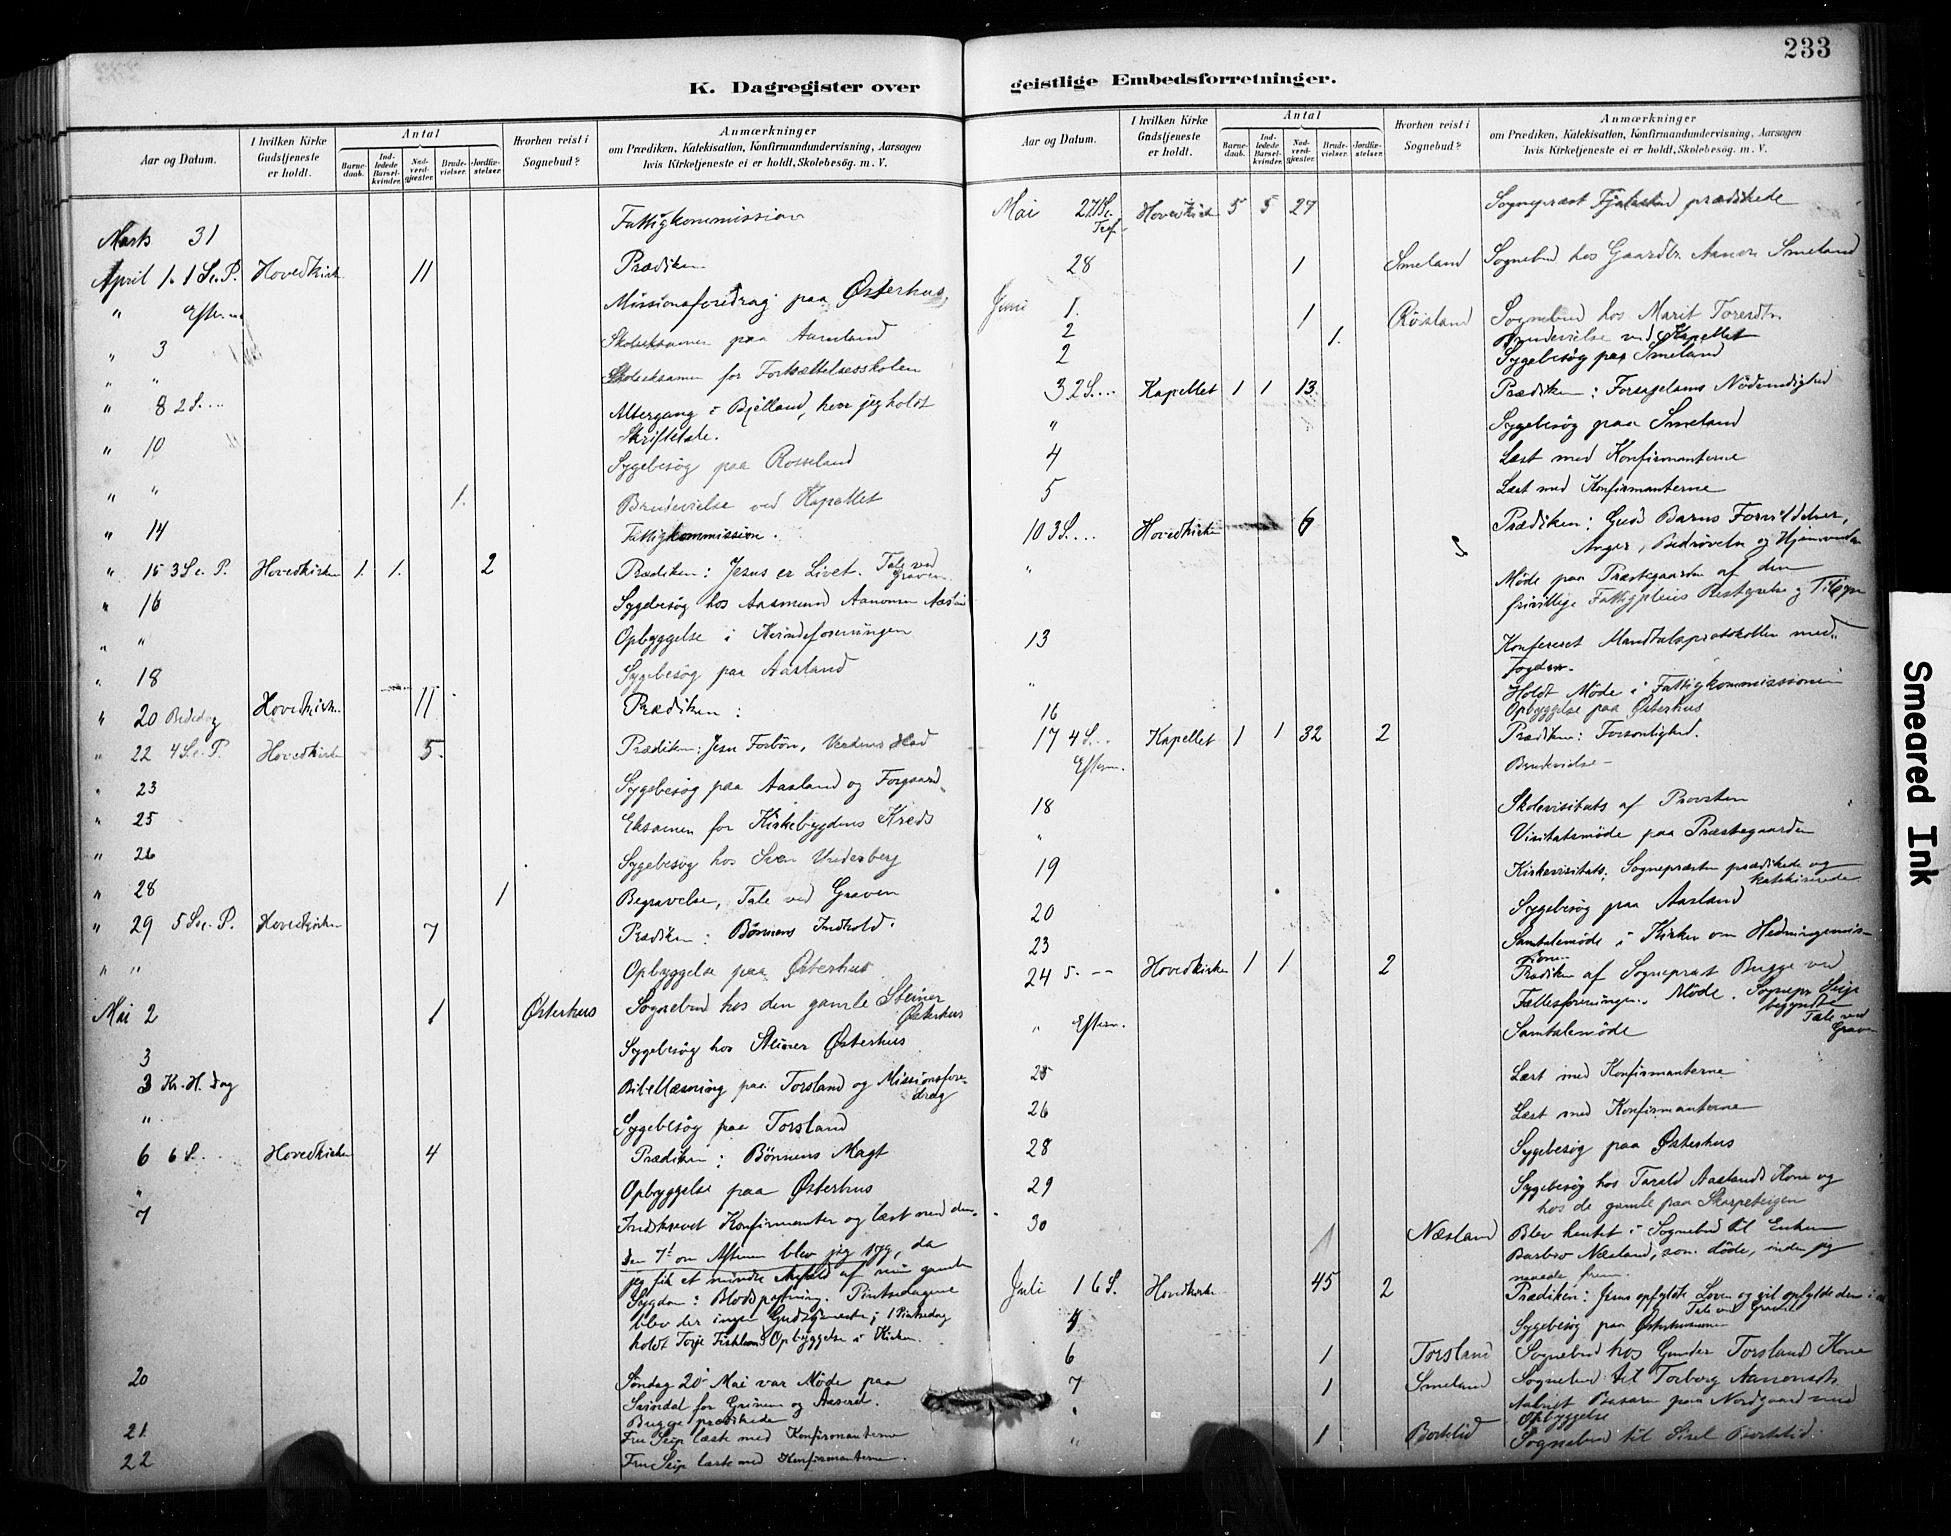 233
K. Dagregister over
Aar og Datum.
I hvilken Kirke Gudstjeneste er holdt.
Antal
Barnedaab.
Indledede Barselkvinder.
Nadverdgjæster.
Brudevielser.
Jordfæstelser.
Hvorhen reist i Sognebud?
Anmærkninger
om Prædiken, Katekisation, Konfirmandundervisning, Aarsagen
hvis Kirketjeneste ei er holdt, Skolebesøg. m. V.
Marts 31 Fattigkommission
April 1. 1 S. e. P. Hovedkirk 11 Prædiken
" Efterm. Missionsforedrag paa Østerhus
" 3 Skoleeksamen paa Aamland
" " Skoleeksamen for Fortsættelsesskolen
" 8 2 S. ... Altergang i Bjelland, hvor jeg holdt
Skriftetale.
" 10 Sygebesøg paa Rosseland
" " 1. Brudevielse ved Kapellet
" 14 Fattigkommission.
" 15 3 S. e. P. Hovedkirken 1. 1. 2 Prædiken: Jesus er Livet. Tale ved
Graven
" 16 Sygebesøg hos Aasmund Aanonsen
" " Opbyggelse i Kvindeforeningen
" 18 Sygebesøg paa Aasland
" 20 Bededag Hovedkirk.. 11 Prædiken:
" 22 4 S. e. P. Hovedkirken 5. Prædiken: Jesu Forbøn, Verdens Had
" 23 Sygebesøg paa Aasland og Forgaard
" 25 Eksamen for Kirkebygdens Kreds
" 26 Sygebesøg hos Sven Underberg
" 28 1 Begravelse, Tale ved Graven
" 29 5 S. e. P. Hovedkirken 7 Prædiken: Bønnens Indhold.
" " Opbyggelse paa Østerhus
Mai 2 1 Østerhus Sognebud hos den gamle Steiner
Østerhus
3 Sygebesøg hos Steiner Østerhus
3 Kr. H. dag Bibellæsning paa Torsland og Missionsfore-
drag
" Sygebesøg paa Torsland
6 6 S. Hovedkirken 4 Prædiken: Bønnens Magt
" Opbyggelse paa Østerhus
7 Indskrevet Konfirmanter og læst med dem.
Den 7de om Aftenen blev jeg syg, da
jeg fik et mindre Anfald af min gamle
Sygdom: Blodspytning. Pintsedagene
blev der ingen Gudstjeneste; 1 Pintsedag
holdt Torje Opbyggelse i Kirken.
20 Søndag 20 Mai var Møde paa
Svindal for Grinem og Aaseral.
Bugge prædikede
21. Fru Seip læste med Konfirmanterne
22 Fru Seip læste med Konfirmanterne.
geistlige Embedsforretninger.
Aar og Datum.
I hvilken Kirke Gudstjeneste er holdt.
Antal
Barnedaab.
Indledede Barselkvinder.
Nadverdgjæster.
Brudevielser.
Jordfæstelser.
Hvorhen reist i Sognebud?
Anmærkninger
om Prædiken, Katekisation, Konfirmandundervisning, Aarsagen
hvis Kirketjeneste ei er holdt, Skolebesøg. m. V.
Mai 27 S. e. Tref. Hovedkirk 5 5 27 Sognepræst prædikede
28 1 Smeland Sognebud hos Gaardbr. Aanon Smeland
Juni 1. 1 Røisland Sognebud hos Marit Toresdtr.
2 1. Brudevielse ved Kapellet
2 Sygebesøg paa Smeland
3 2 S.... Kapellet 1 1 13 Prædiken: Forsagelsens Nødvendighed
" Sygebesøg paa Smeland
4 Læst med Konfirmanterne
5 Læst med Konfirmanterne
10 3 S.... Hovedkirken 6 Prædiken: Guds Barns Forvildelser,
Anger, Bedrøvelse og Hjemvenden
" Møde paa Præstegaarden af den
frivillige Fattigpleies Bestyrelse og Tilsyn
13 Konfereret Mandtalsprotokollen med
Fogden.
" Holdt Møde i Fattigkommissionen
16 Opbyggelse paa Østerhus
17 4 S... Kapellet 1 1 32 2 Prædiken: Forsonlighed.
Efterm. Brudevielse
18 Skolevisitats af Provsten
" Visitatsmøde paa Præstegaarden
19 Kirkevisitats; Sognepræsten prædikede og
katekiserede
20 Sygebesøg paa Aasland
23 Samtalemøde i Kirken om Hedningemis-
sion
24 5. -- Hovedkirken 1 1 2 Prædiken af Sognepræst Bugge ved
Fællesforeningens Møde. Sognepr. Seip
begyndte
Tale ved
Graven
" Efterm. Samtalemøde
25 Læst med Konfirmanterne
26 Læst med Konfirmanterne
28 Sygebesøg paa Østerhus
29 Sygebesøg hos Tarald Aaslands Kone og
hos de gamle paa Skarpeteigen
30 1 Næsland Blev hentet i Sognebud til Enken
Barbro Næsland, som døde, inden jeg
naaede frem.
Juli 1 6 S. Hovedkirke 45 2 Prædiken: Jesus opfyldte Loven og vil opfylde den i os
Tale ved Graven
4 Sygebesøg paa
6 1 Torsland Sognebud hos Gunder Torslands Kone
7 1 Smeland Sognebud til Torborg Aanonsdtr.
" Aabnet Basaren paa Nordgaard med
Opbyggelse
" 1 Bortelid Sognebud til Sisel Bortelid.
Smeared Ink